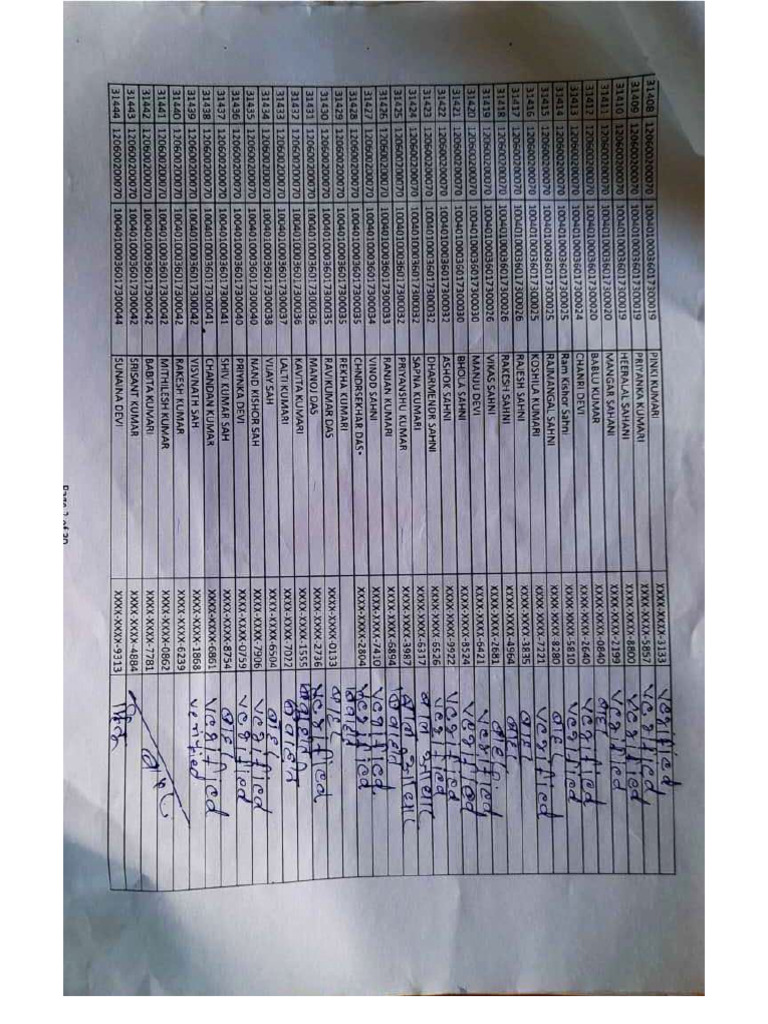 31408 120600200070 10040100036017300019 PINKI KUMARI XXXX-XXXX-3133 verified
31409 120600200070 10040100036017300019 PRIYANKA KUMARI XXXX-XXXX-5857 verified
31410 120600200070 10040100036017300019 HEERALAL SAHANI XXXX-XXXX-8800 verified
31411 120600200070 10040100036017300020 MANGAR SAHANI XXXX-XXXX-7199 verified
31412 120600200070 10040100036017300020 BABLU KUMAR XXXX-XXXX-0840
31413 120600200070 10040100036017300024 CHANRI DEVI XXXX-XXXX-2640 verified
31414 120600200070 10040100036017300025 Ram Kishor Sahni XXXX-XXXX-5810 verified
31415 120600200070 10040100036017300025 RAJMANGAL SAHNI XXXX-XXXX-8280
31416 120600200070 10040100036017300025 KOSHILA KUMARI XXXX-XXXX-7221 verified
31417 120600200070 10040100036017300026 RAJESH SAHNI XXXX-XXXX-3835
31418 120600200070 10040100036017300026 RAKESH SAHNI XXXX-XXXX-4964
31419 120600200070 10040100036017300026 VIKAS SAHNI XXXX-XXXX-2681 verified
31420 120600200070 10040100036017300030 MANJU DEVI XXXX-XXXX-6421 verified
31421 120600200070 10040100036017300030 BHOLA SAHNI XXXX-XXXX-8524 verified
31422 120600200070 10040100036017300032 ASHOK SAHNI XXXX-XXXX-9922 verified
31423 120600200070 10040100036017300032 DHARMENDR SAHNI XXXX-XXXX-6526 verified
31424 120600200070 10040100036017300032 SAPNA KUMARI XXXX-XXXX-6317
31425 120600200070 10040100036017300032 PRIYANSHU KUMAR XXXX-XXXX-3987
31426 120600200070 10040100036017300033 RANJAN KUMARI XXXX-XXXX-6894
31427 120600200070 10040100036017300034 VINOD SAHNI XXXX-XXXX-7410 verified
31428 120600200070 10040100036017300035 CHNDRSEKHAR DAS XXXX-XXXX-2804 verified
31429 120600200070 10040100036017300035 REKHA KUMARI
31430 120600200070 10040100036017300035 RAVIKUMAR DAS XXXX-XXXX-0133
31431 120600200070 10040100036017300036 MANOJ DAS XXXX-XXXX-2736 verified
31432 120600200070 10040100036017300036 KAVITA KUMARI XXXX-XXXX-1555
31433 120600200070 10040100036017300037 LALTI KUMARI XXXX-XXXX-7022
31434 120600200070 10040100036017300038 VIJAY SAH XXXX-XXXX-6504
31435 120600200070 10040100036017300040 NAND KISHOR SAH XXXX-XXXX-7906 verified
31436 120600200070 10040100036017300040 PRIYNKA DEVI XXXX-XXXX-0759 verified
31437 120600200070 10040100036017300041 SHIV KUMAR SAH XXXX-XXXX-8754
31438 120600200070 10040100036017300041 CHANDAN KUMAR XXXX-XXXX-6861 verified
31439 120600200070 10040100036017300042 VISVNATH SAH XXXX-XXXX-1868 verified
31440 120600200070 10040100036017300042 RAKESH KUMAR XXXX-XXXX-6239
31441 120600200070 10040100036017300042 MITHILESH KUMAR XXXX-XXXX-0862
31442 120600200070 10040100036017300042 BABITA KUMARI XXXX-XXXX-7781
31443 120600200070 10040100036017300042 SRISANT KUMAR XXXX-XXXX-4884
31444 120600200070 10040100036017300044 SUNAINA DEVI XXXX-XXXX-9313